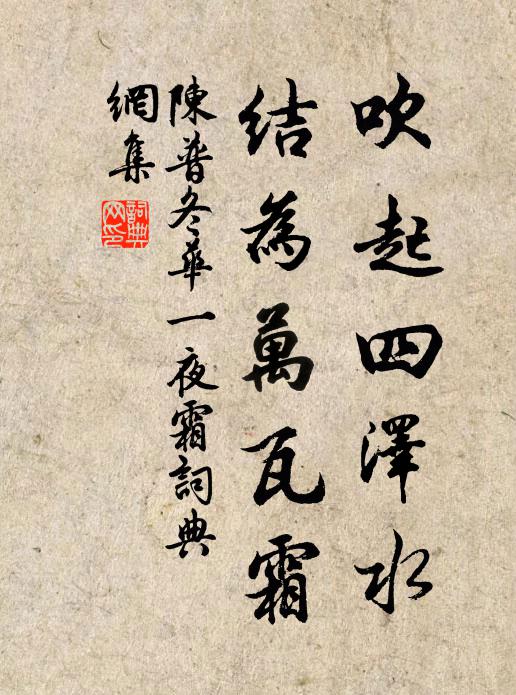 吹起四澤水
結為萬瓦霜
陳普冬華一夜霜詞典
網集
詞典網印